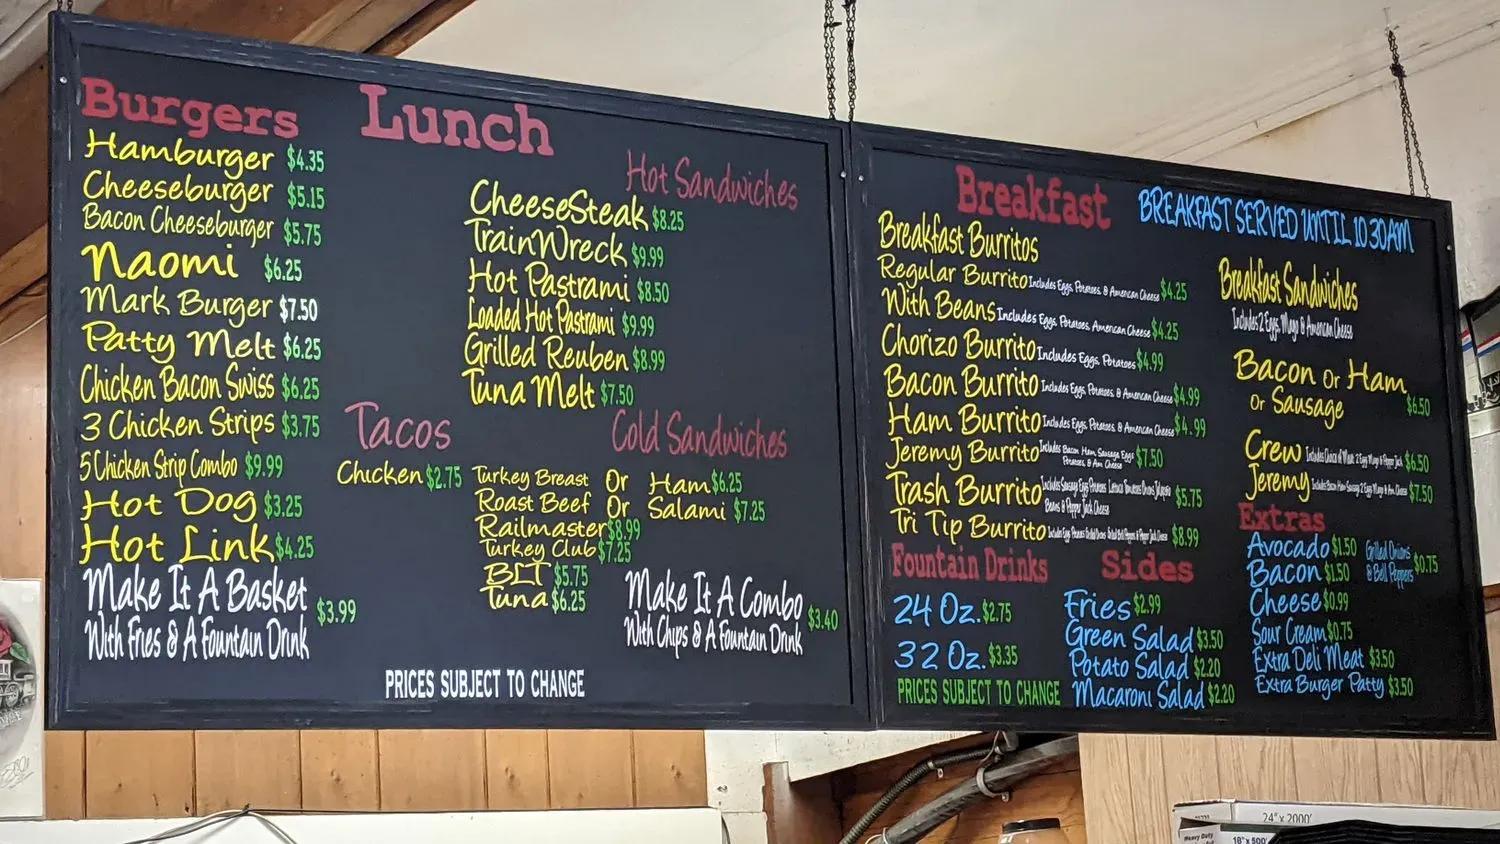 Burgers
Hamburger $4.35
Cheeseburger $5.15
Bacon Cheeseburger $5.75
Naomi $6.25
Mark Burger $7.50
Patty Melt $6.25
Chicken Bacon Swiss $6.25
3 Chicken Strips $3.75
5 Chicken Strip Combo $9.99
Hot Dog $3.25
Hot Link $4.25
Make It A Basket $3.99
With Fries & A Fountain Drink
Lunch
Hot Sandwiches
CheeseSteak $8.25
TrainWreck $9.99
Hot Pastrami $8.50
Loaded Hot Pastrami $9.99
Grilled Reuben $8.99
Tuna Melt $7.50
Tacos
Chicken $2.75
Cold Sandwiches
Turkey Breast Or Ham $6.25
Roast Beef Or Salami $7.25
Railmaster $8.99
Turkey Club $7.25
BLT $5.75
Tuna $6.25
Make It A Combo $3.40
With Chips & A Fountain Drink
PRICES SUBJECT TO CHANGE
Breakfast
BREAKFAST SERVED UNTIL 10 30AM
Breakfast Burritos
Regular Burrito Includes Eggs, Potatoes, & American Cheese $4.25
With Beans Includes Eggs, Potatoes, American Cheese $4.25
Chorizo Burrito Includes Eggs, Potatoes $4.99
Bacon Burrito Includes Eggs, Potatoes, & American Cheese $4.99
Ham Burrito Includes Eggs, Potatoes, & American Cheese $4.99
Jeremy Burrito Includes Bacon Ham, Sausage Eggs $7.50
Potatoes, & Am Cheese
Trash Burrito Includes Sausage Eggs Potatoes Lettuce Tomatoes Onions Jalapeño $5.75
Beans & Pepper Jack Cheese
Tri Tip Burrito Includes Eggs Potatoes Grilled Onions Grilled Bell Peppers & Pepper Jack Cheese $8.99
Breakfast Sandwiches
Includes 2 Eggs, Mayo & American Cheese
Bacon Or Ham
Or Sausage $6.50
Crew Includes Choice of Meat 2 Egg Mayo & Pepper Jack $6.50
Jeremy Includes Bacon Ham Sausage 2 Egg Mayo & Am Cheese $7.50
Fountain Drinks
24 Oz. $2.75
32 Oz. $3.35
PRICES SUBJECT TO CHANGE
Sides
Fries $2.99
Green Salad $3.50
Potato Salad $2.20
Macaroni Salad $2.20
Extras
Avocado $1.50
Bacon $1.50
Grilled Onions
& Bell Peppers $0.75
Cheese $0.99
Sour Cream $0.75
Extra Deli Meat $3.50
Extra Burger Patty $3.50
24" x 2000'
Heavy Duty
18" x 500'